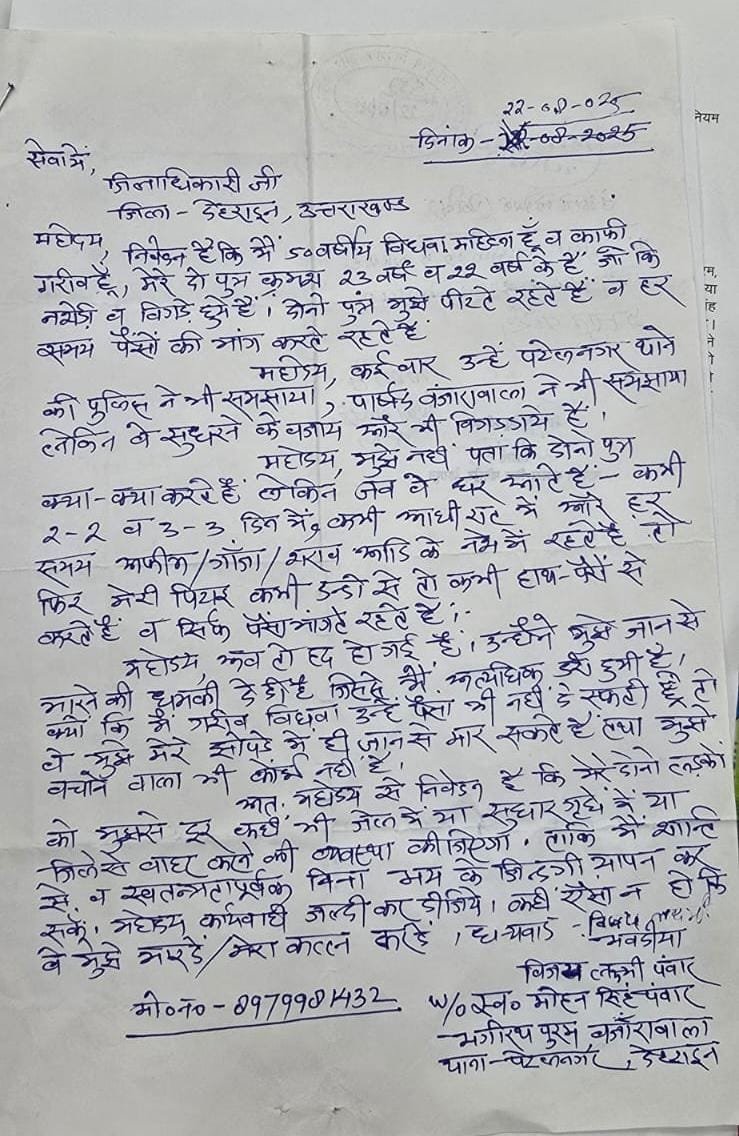 22-08-025
दिनांक - 22-08-2025
सेवा में,
जिलाधिकारी जी
जिला - देहरादून, उत्तराखण्ड
महोदय, निवेदन है कि मैं 50 वर्षीय विधवा महिला हूँ व काफी
गरीब हूँ, मेरे दो पुत्र क्रमश 23 वर्ष व 22 वर्ष के हैं जो कि
नशेड़ी व बिगडे हुये हैं। दोनो पुत्र मुझे पीटते रहते हैं व हर
समय पैसों की मांग करते रहते हैं
महोदय, कई बार उन्हें पटेलनगर थाने
की पुलिस ने भी समझाया, पार्षद बंजारावाला ने भी समझाया
लेकिन वे सुधरने के बजाय और भी बिगड गये हैं।
महोदय, मुझे नहीं पता कि दोनो पुत्र
क्या-क्या करते हैं लेकिन जब वे घर आते हैं - कभी
2-2 व 3-3 दिन में, कभी आधी रात में और हर
समय अफीम/गाँजा/शराब आदि के नशे में रहते हैं तो
फिर मेरी पिटाई कभी डन्डो से तो कभी हाथ-पैरों से
करते हैं व सिर्फ पैसा मांगते रहते हैं।
महोदय, अब तो हद हो गई है। उन्होंने मुझे जान से
मारने की धमकी दे दी है जिससे मैं अत्यधिक डरी हुयी हूँ,
क्यों कि मैं गरीब विधवा उन्हें पैसा भी नहीं दे सकती हूँ तो
वे मुझे मेरे झोपडे में ही जान से मार सकते हैं तथा मुझे
बचाने वाला भी कोई नहीं है।
अतः महोदय से निवेदन है कि मेरे दोनो लड़को
को मुझसे दूर कहीं भी जेल में या सुधार गृह में या
जिले से बाहर करने की व्यवस्था कीजिएगा। ताकि मैं शान्ति
से व स्वतन्त्रतापूर्वक बिना भय के जिन्दगी यापन कर
सकूँ। महोदय कार्यवाही जल्दी कर दीजिये। कहीं ऐसा न हो कि
वे मुझे मारदें/मेरा कत्ल करदें, धन्यवाद - विजय लक्ष्मी
भवदीया
विजय लक्ष्मी पंवार
मो० नं० - 8979981432 W/o स्व० मोहन सिंह पंवार
भगीरथ पुरम बंजारावाला
थाना - पटेलनगर, देहरादून
नियम